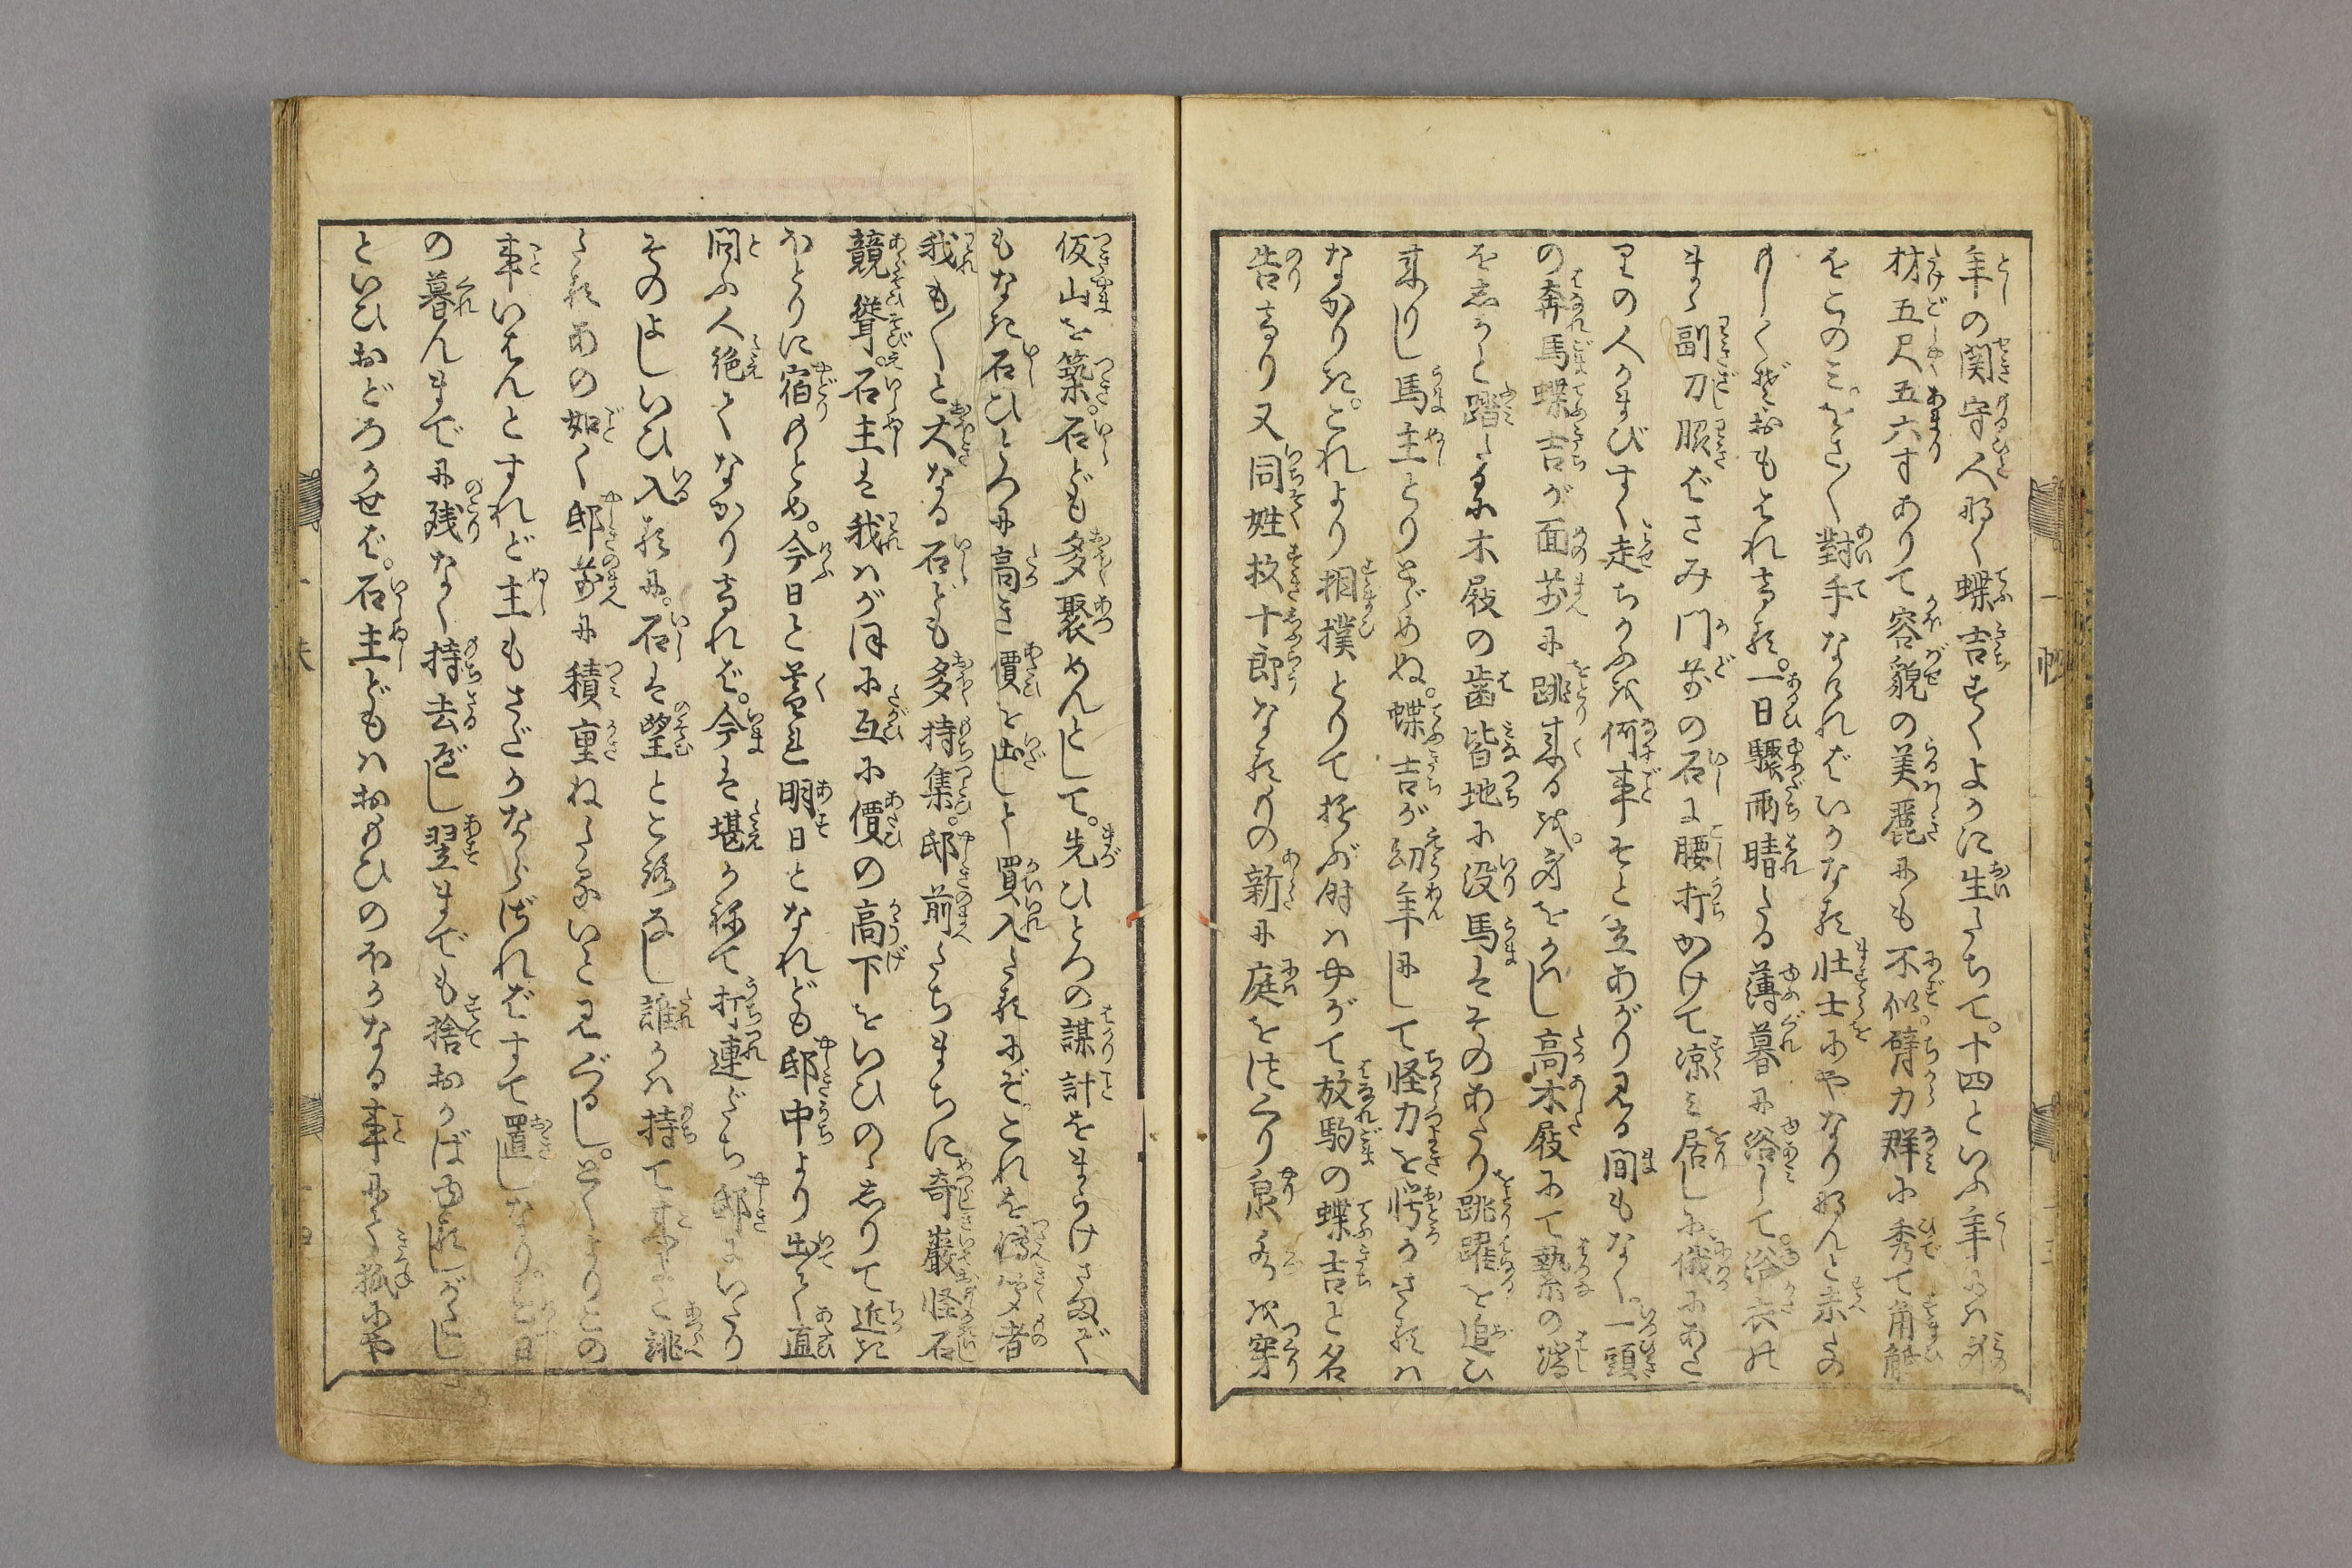 年の関守人なく蝶吉すくよかに生たちて。十四といふ年には身
材五尺五六寸ありて容貌の美麗にも不似。臂力群に秀て角觝
をこのみ。をさ〳〵對手なければいかなる壮士にやなりなんと末たの
もしくぞおもはれける。一日驟雨晴たる薄暮に浴して。浴衣の
まゝ副刀脇ばさみ門前の石に腰打かけて凉み居しに俄にあた
りの人かまびすく走ちかふを何事ぞと立あがり見る間もなく。一頭
の奔馬蝶吉が面前に跳来るを。身をかはし高木屐にて𣠽の端
をしかと踏たるに木屐の歯皆地に没馬はそのあたり跳躍を追ひ
来りし馬主とりとゞめぬ。蝶吉が幼年にして怪力を愕かざるは
なかりき。これより相撲とりて遊ぶ時はやがて放駒の蝶吉と名
告けり又同姓杦十郎なるもの新に庭をつくり泉水を穿
仮山を築。石ども多聚めんとして。先ひとつの謀計をまうけさせぞ
もなき石ひとつに高き價を出して買入たるにぞ。これを傳聞者
我も〳〵と大なる石ども多持集。邸前たちまちに奇巌怪石
競聳。石主は我はが侭に互に価の高下をいひのゝしりて近き
ほとりに宿もとめ。今日と暮し明日となれども邸中より出て直
問ふ人絶てなかりければ。今は堪かねて打連だち邸にいたり
そのよしいひ入るに。石は望ところなし誰かは持て来よと誂
たるあの如く邸前に積重ねたるはいと見ぐるし。とくよりこの
事いはんとすれど主もさだかならざればすて置しなりけふ日
の暮んまでに残なく持去べし翌までも捨おかばゆるしがたし
といひおどろかせば。石主どもはおもひのほかなる事にて狐にや